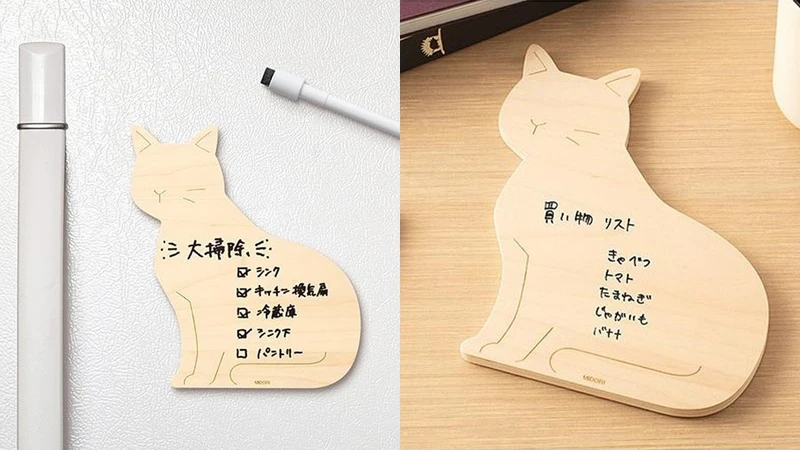 大掃除
☑ シンク
☑ キッチン換気扇
☑ 冷蔵庫
☑ シンク下
☐ パントリー
MIDORI
買い物 リスト
きゃべつ
トマト
たまねぎ
じゃがいも
バナナ
MIDORI